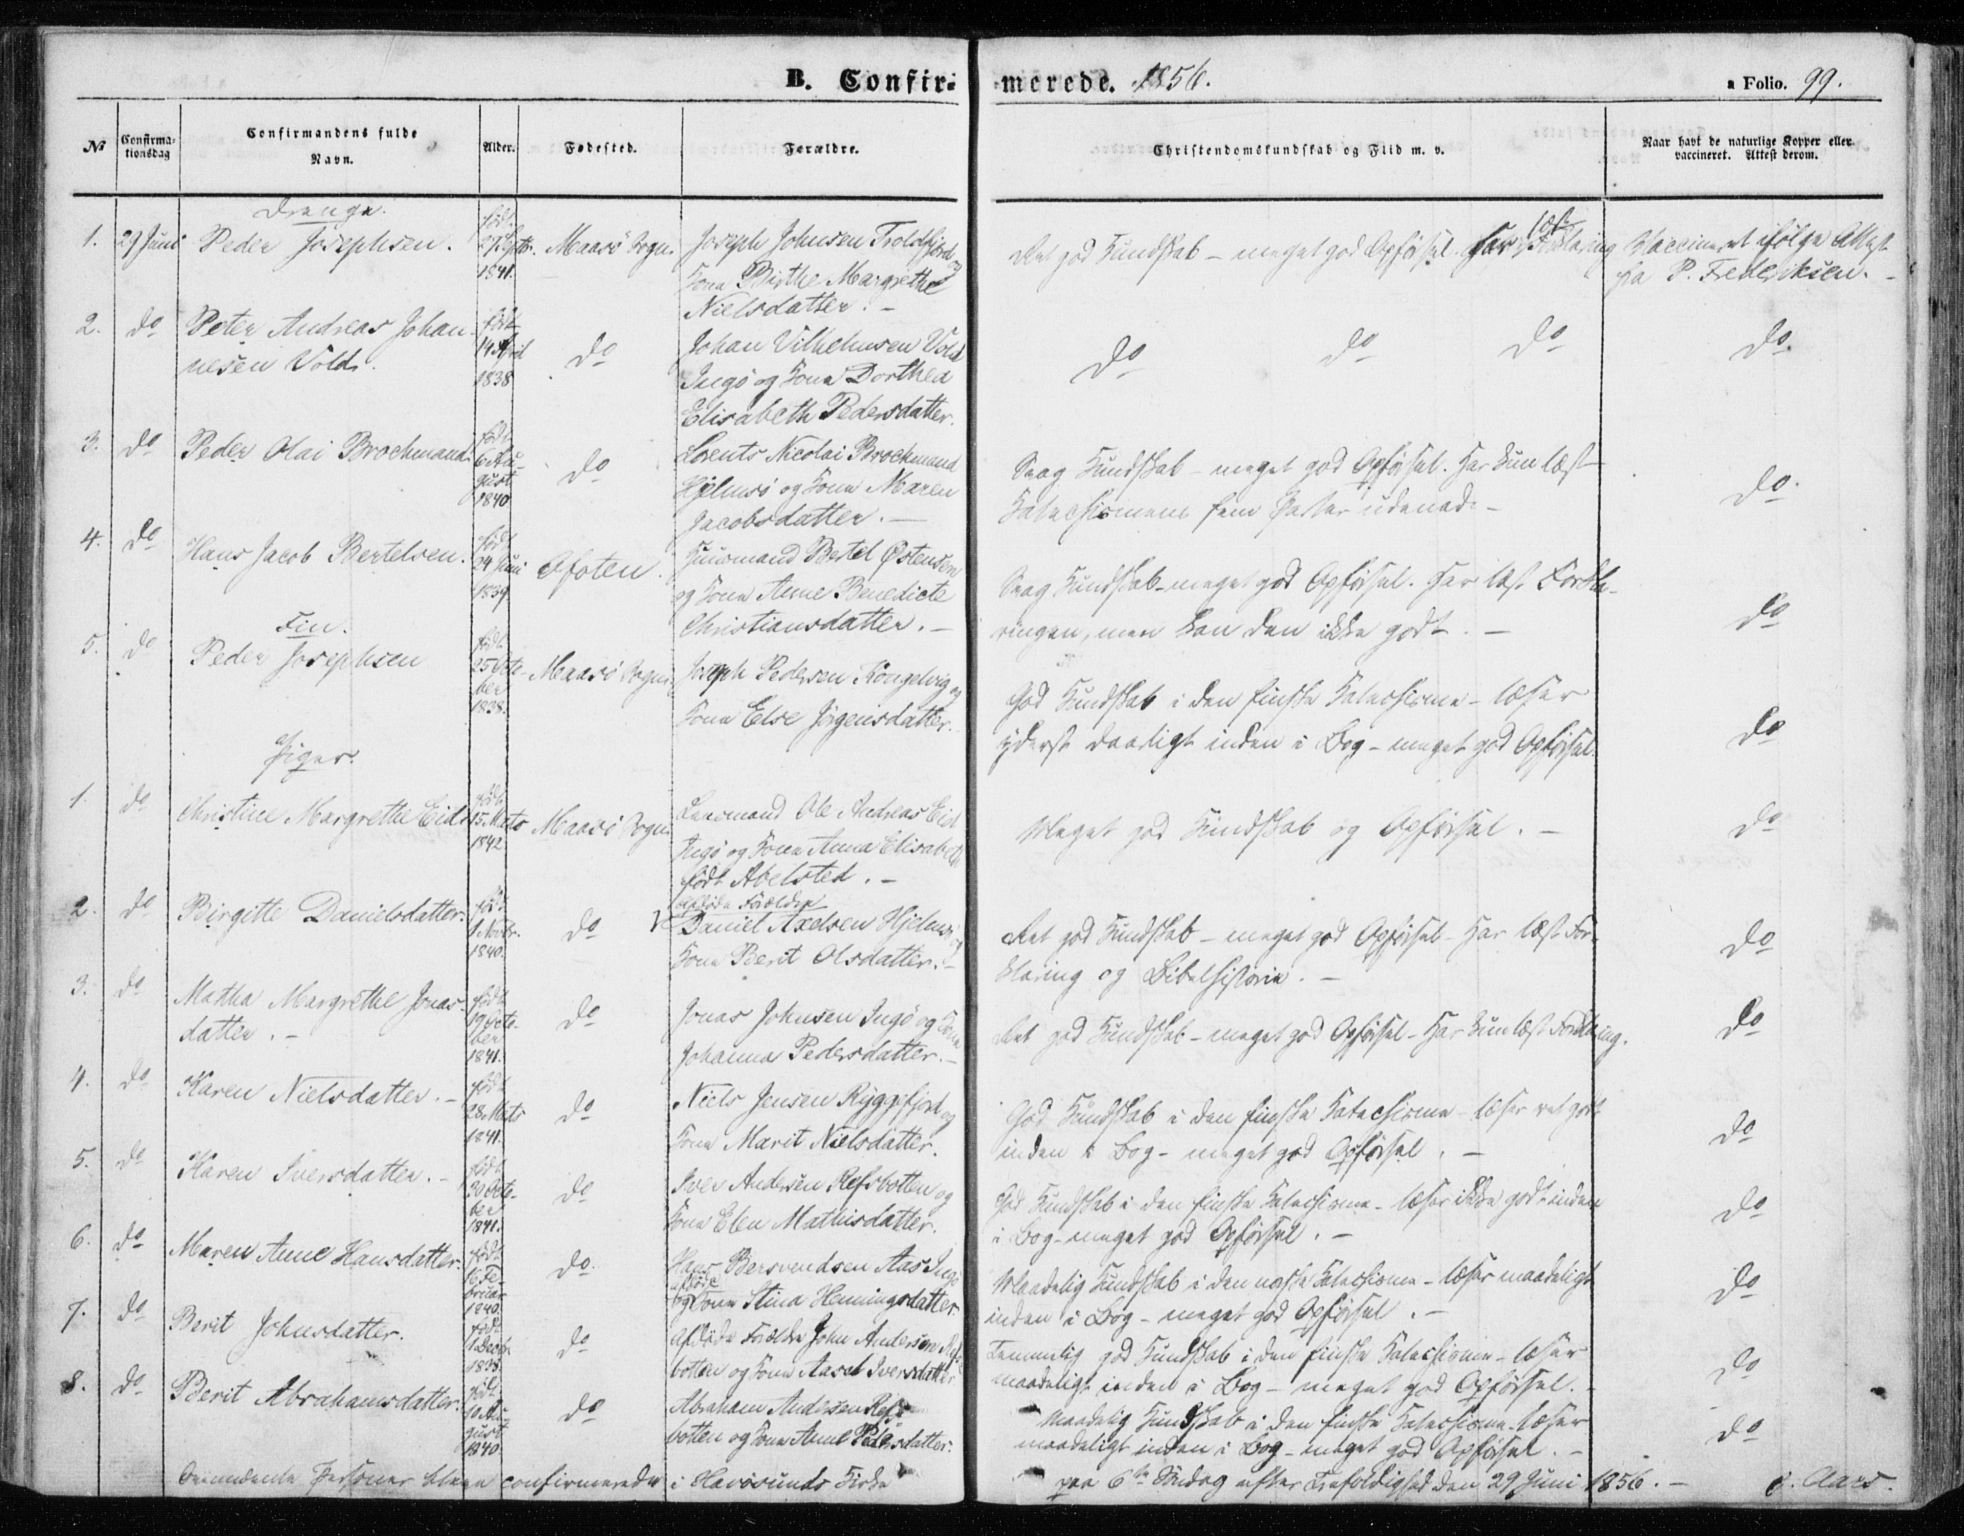 B. Confirmerede. 1856.
a Folio. 99.
№ Confirmationsdag Confirmandens fulde Navn. Alder. Fødested. Forældre. Christendomskundskab og Flid m. v. Naar havt de naturlige Kopper eller vaccineret. Attest derom.
Drenge.
1. 29 Juni Peder Josephsen. født 27 Septbr. 1841. Maasö Sogn. Joseph Johnsen Troldfjord og
Kone Birthe Margrethe
Nielsdatter. –
Ret god Kundskab – meget god Opförsel. Har læst Forklaring
Vaccineret ifölge Attest
fra P. Frederiksen. –
2. do Peter Andreas Johan-
nesen Vold. født 14 April 1838 do Johan Vilhelmsen Vold
Ingö og Kone Dorthea
Elisabeth Pedersdatter.
do do do do.
3. do Peder Olai Brochmand. født 6 August 1840 do Lorents Nicolai Brochmand
Hjelmsö og Kone Maren
Jacobsdatter. –
Svag Kundskab – meget god Opförsel. Har kun læst
Katechismens fem Parter udenad. –
do.
4. do Hans Jacob Bertelsen. født 24 Juni 1839 Ofoten. Huusmand Bertel Östensen
og Kone Anne Benedicte
Christiansdatter. –
Svag Kundskab – meget god Opförsel. Har læst Forkla-
ringen, men kan den ikke godt. –
do
Fin.
5. do Peder Josephsen født 25 October 1838. Maasö Sogn. Joseph Pedersen Kongelvig og
Kone Else Jörgensdatter.
God Kundskab i den finske Katechisme – læser
yderst daarligt inden i Bog – meget god Opförsel.
do
Piger.
1. do Christine Margrethe Eid. født 15 Marts 1842 Maasö Sogn Lensmand Ole Andreas Eid
Ingö og Kone Anna Elisabeth
födt Abelsted. –
Meget god Kundskab og Opförsel. –
do
2. do Birgitte Danielsdatter. født 1 Novbr. 1840. do afdöde Forældre
Daniel Axelsen Hjelmsö og
Kone Berit Olsdatter. –
Ret god Kundskab – meget god Opförsel – Har læst For-
klaring og Bibelhistorie. –
do
3. do Matha Margrethe Jonas-
datter. – født 19 October 1841. do Jonas Johnsen Ingö og Kone
Johanna Pedersdatter. –
Ret god Kundskab – meget god Opförsel – Har kun læst Forklaring.
do
4. do Karen Nielsdatter. – født 28 Marts 1841. do Niels Jensen Ryggefjord og
Kone Marit Nielsdatter.
God Kundskab i den finske Katechisme – læser ret godt
inden i Bog – meget god Opförsel. –
do
5. do Karen Iversdatter. – født 30 October 1841. do Iver Andersen Refsbotten og
Kone Elen Mathisdatter.
God Kundskab i den finske Katechisme – læser ikke godt inden
i Bog – meget god Opförsel. –
do
6. do Maren Anne Hansdatter. født 16 Februar 1840. do. Hans Bersvendsen Aas Ingö
og döde Kone Stina Henningsdatter
Maadelig Kundskab i den norske Katechisme – læser maadeligt
inden i Bog – meget god Opförsel. –
do
7. do Berit Johnsdatter. født 1 Decbr. 1838. do Afdöde Forældre John Andersen Refs-
botten og Kone Aaset Iversdatter
Temmelig god Kundskab i den finske Katechisme – læser
maadeligt inden i Bog – meget god Opförsel.
do
8. do Berit Abrahamsdatter. født 10 August 1840 do Abraham Andersen Refs-
botten og Kone Anne Pedersdatter.
Maadelig Kundskab i den finske Katechisme – læser
maadeligt inden i Bog – meget god Opförsel. –
do
Personer bleve confirmerede i Havösunds Kirke
paa 6te Söndag efter Trefoldighed den 29 Juni 1856. – Aars.